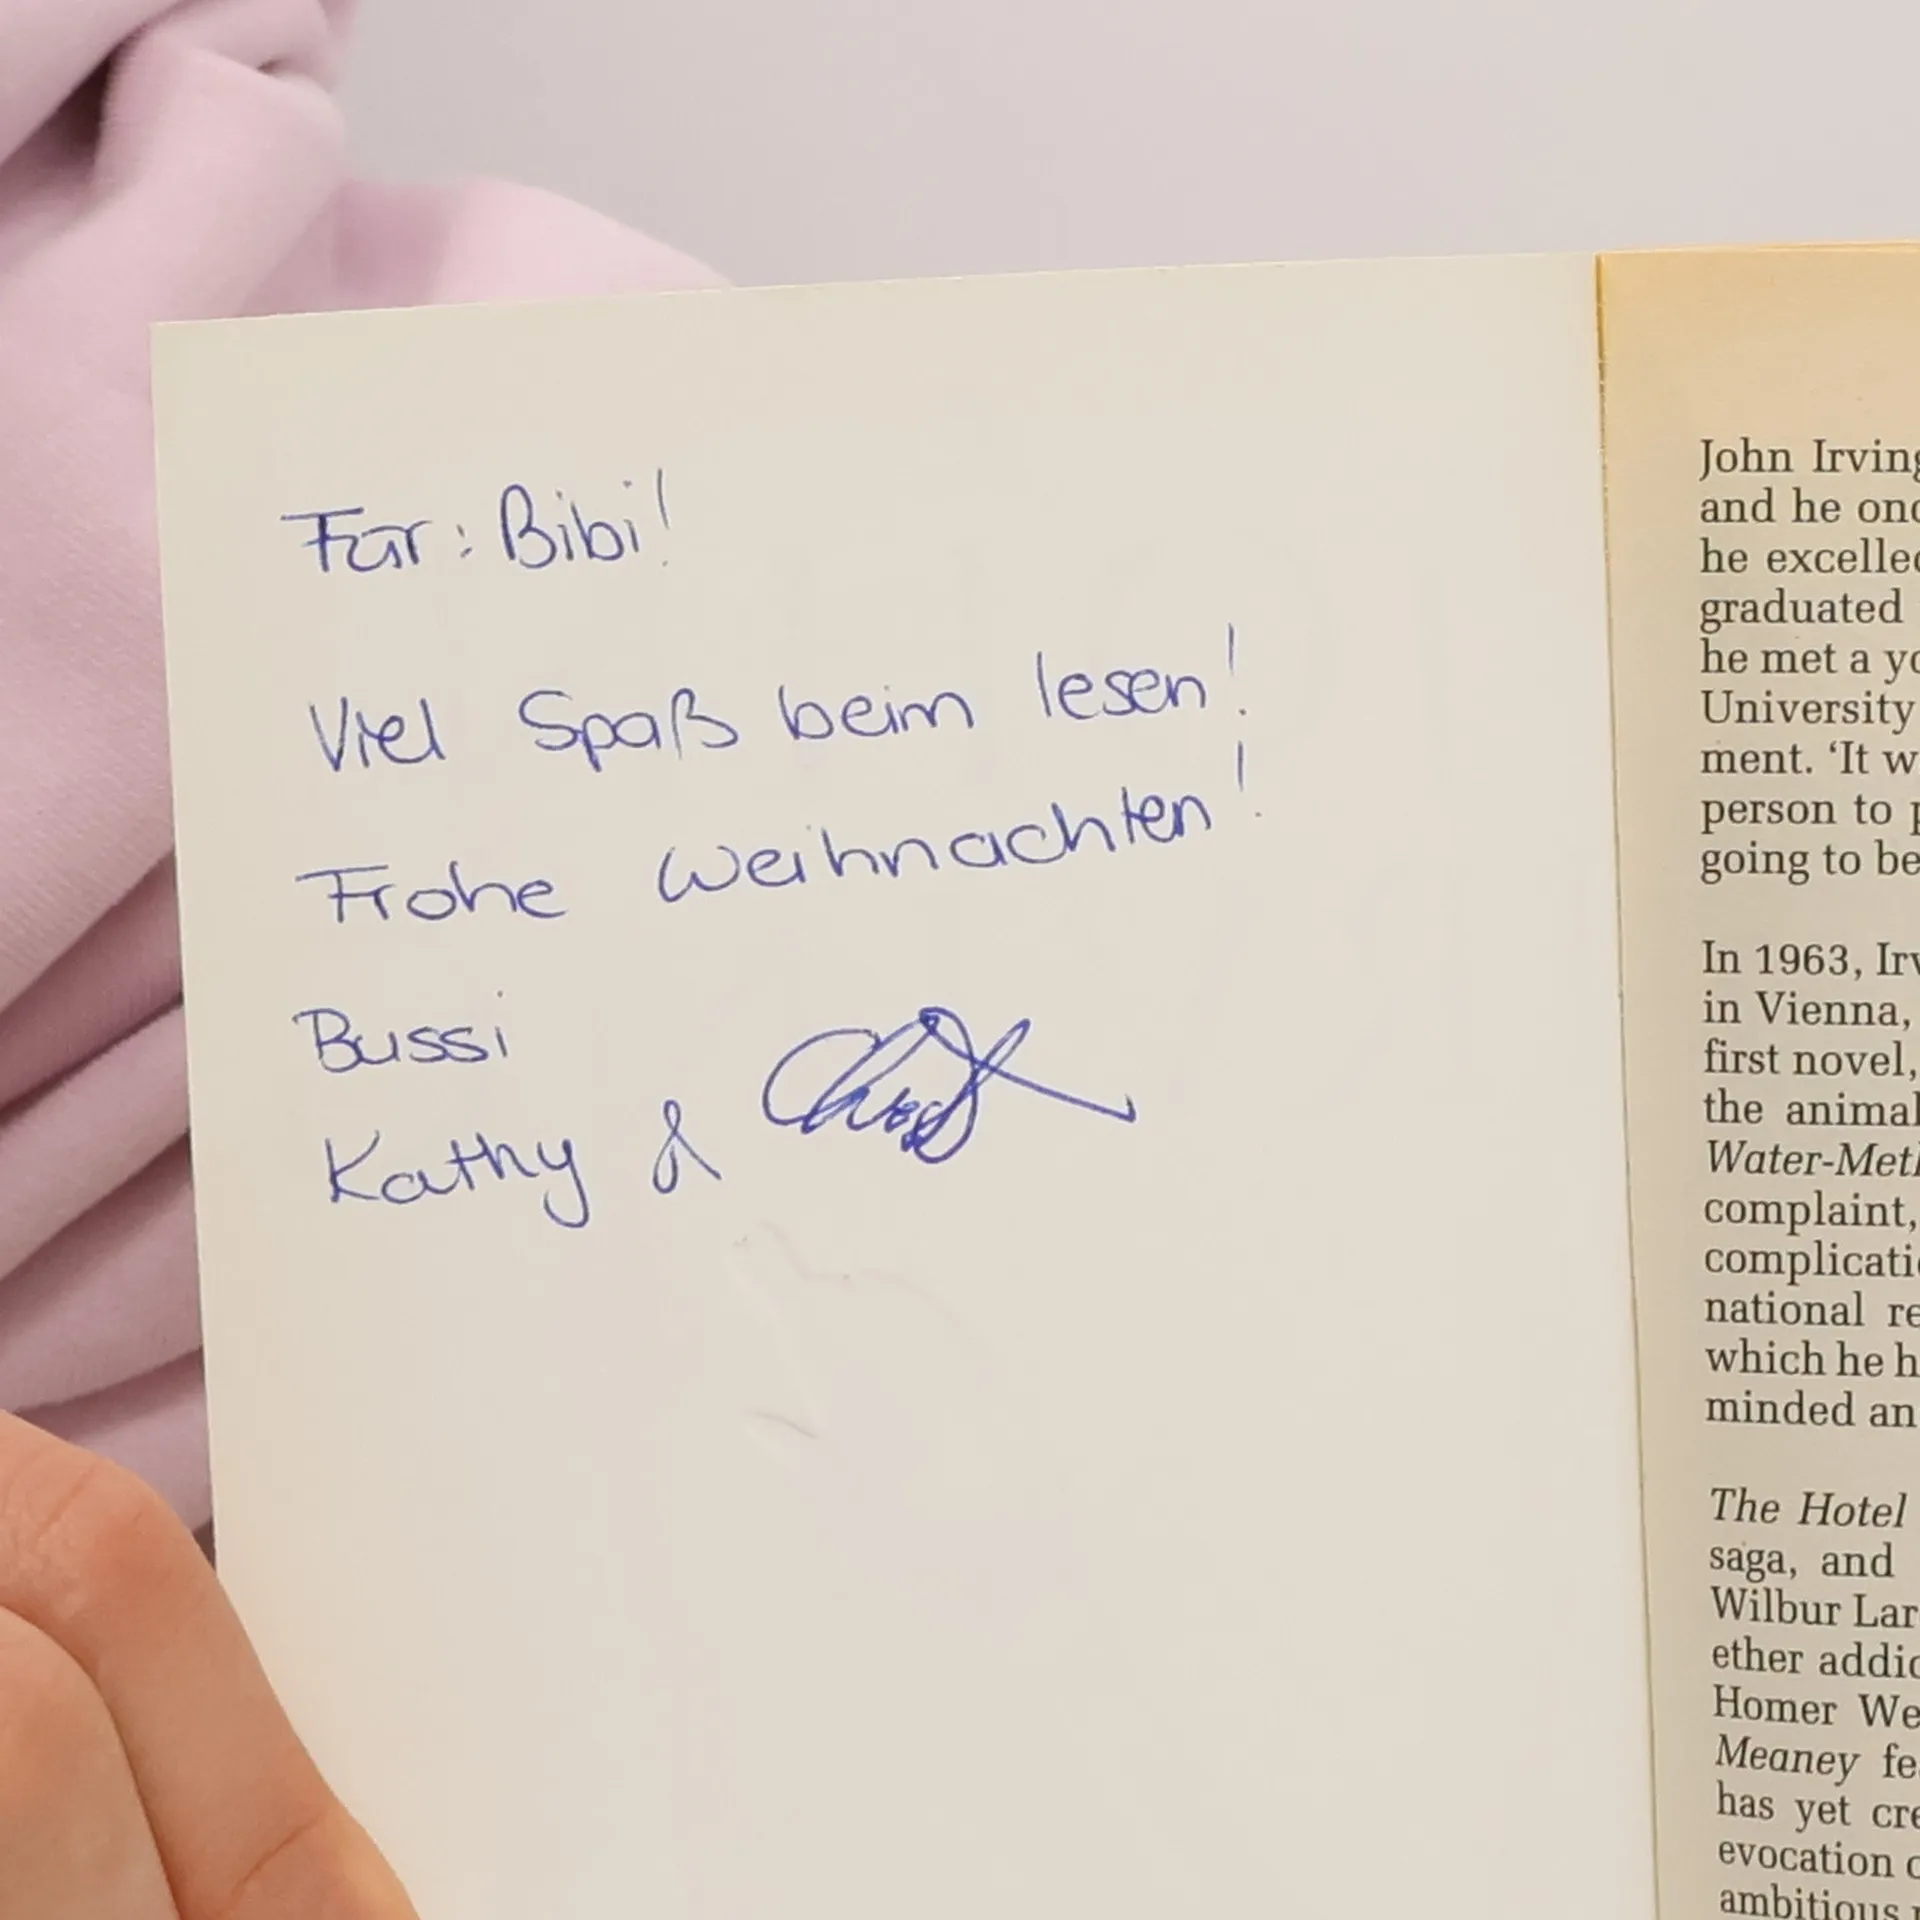 Für: Bibi!
Viel Spaß beim lesen!
Frohe Weihnachten!
Bussi
Kathy &
John Irving
and he
he excelled
graduated
he met a
University
ment. ‘It
person to
going to be
In 1963,
in Vienna,
first novel,
the animal
Water-
complaint,
national
which he
minded an
The Hotel
saga, and
Wilbur
ether
Homer
Meaney
has yet
evocation
ambitious